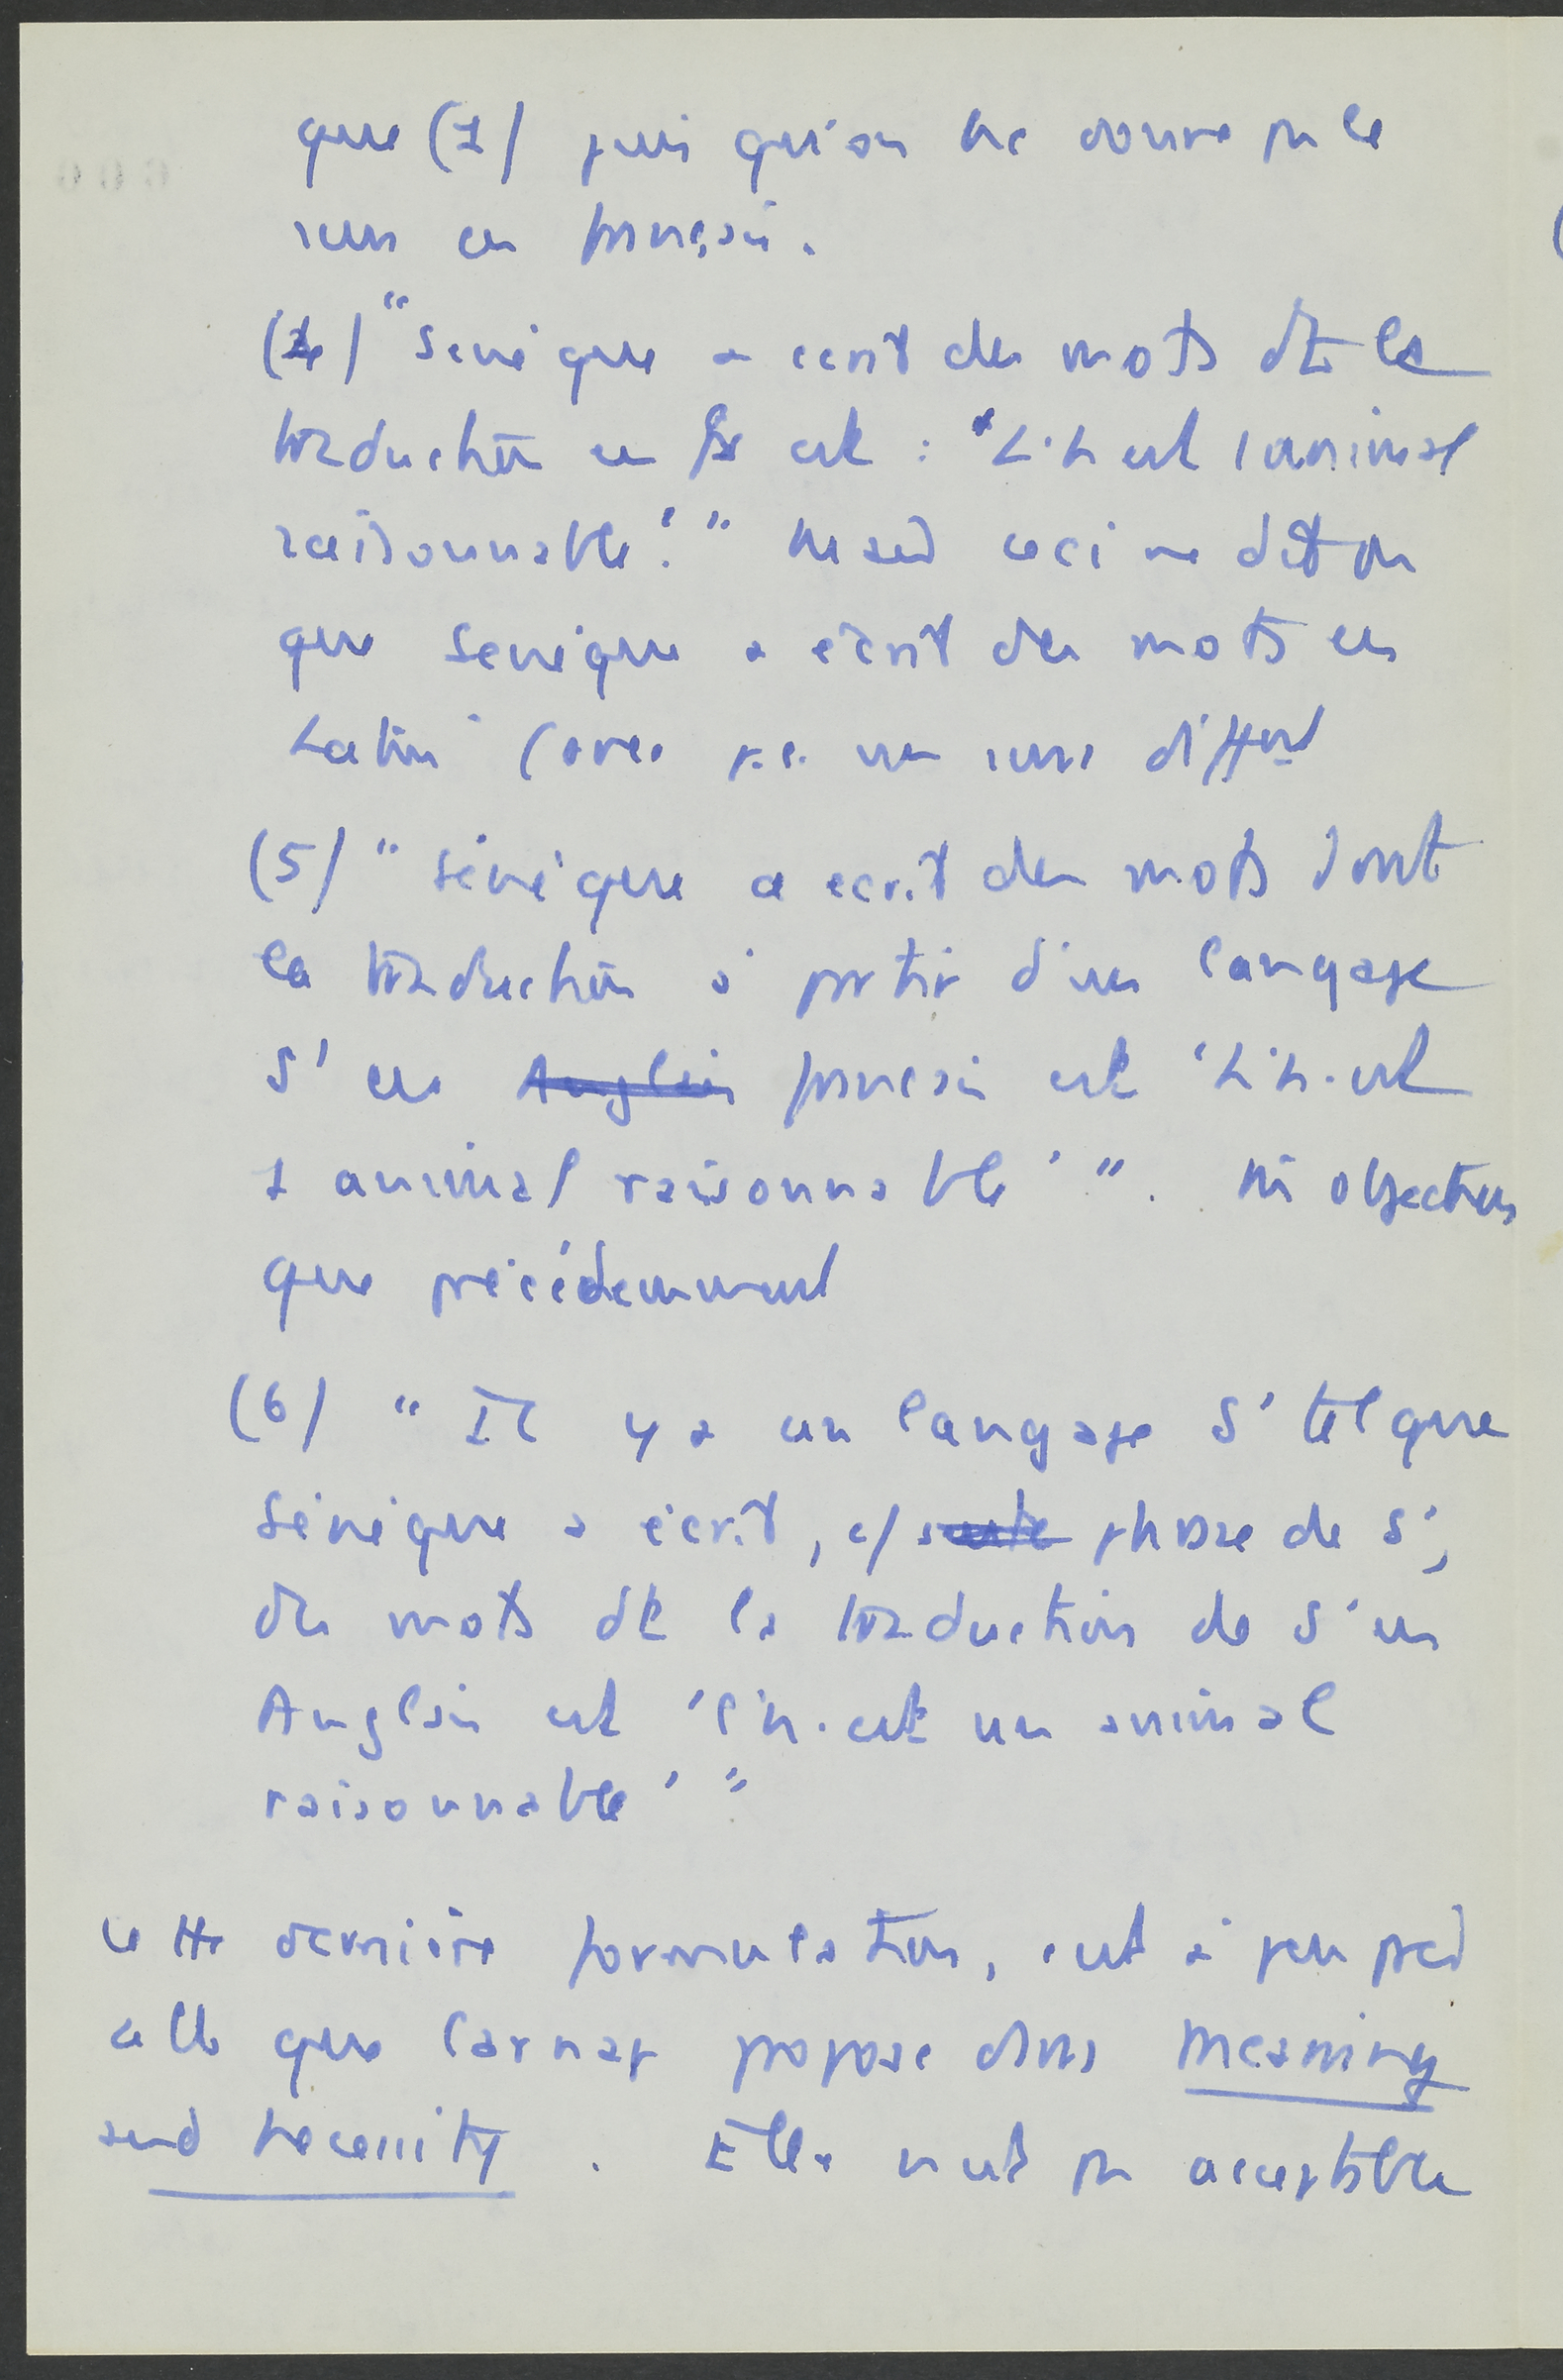 que (1) puis qu'on ne donne pas le
sens en français.
(4) "Sénèque a ecrit des mots dt la
traduction en fr est : 'L'h est 1 animal
raisonnable'." Mais ceci ne dit pas
que Senèque a ecrit des mots en
Latin (avec p.e. un sens différent
(5) "Sénèque a ecrit des mots dont
la traduction à partir d'un langage
S' en Anglais français est 'L'h. est
1 animal raisonnable'". objection
que précédemment
(6) "Il y a un langage S' tel que
Sénèque a écrit, c/ phrase de S',
des mots dt la traduction de S' en
Anglais est 'l'h. est un animal
raisonnable'"
Cette dernière formulation, est à peu près
celle que Carnap propose dans Meaning
and Necessity. Elle n'est pas acceptable